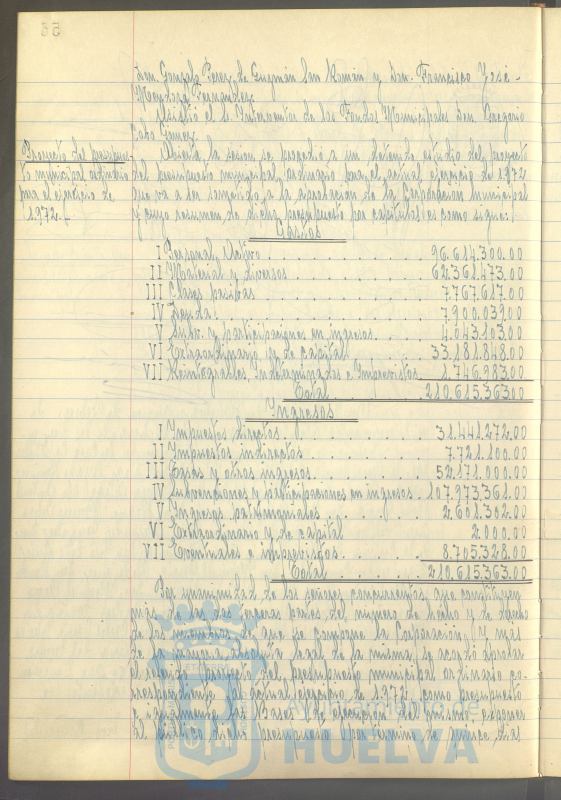 56
Don Gonzalo Perez de Guzmán San Román y Don Francisco José
Mendoza Fernandez
Asistió el Sr. Interventor de los Fondos Municipales Don Gregorio
Cabo Gomez
Proyecto del presupues-
to municipal ordinario
para el ejercicio de
1972.-
Abierta la sesion se procedió a un detenido estudio del proyecto
del presupuesto municipal ordinario para el actual ejercicio de 1972
que va a ser sometido a la aprobación de la Corporacion Municipal
y cuyo resumen de dicho presupuesto por capitulos es como sigue:
Gastos
I Personal Activo 96.614.300.00
II Material y diversos 62.361.473.00
III Clases pasivas 7.767.617.00
IV Deuda 7.900.039.00
V Subv. y participaciones en ingresos 4.043.103.00
VI Extraordinario y de capital 33.181.848.00
VII Reintegrables, Indeterminados e Imprevistos 1.746.983.00
Total 210.615.363.00
Ingresos
I Impuestos directos 31.441.272.00
II Impuestos indirectos 7.721.100.00
III Tasas y otros ingresos 52.171.000.00
IV Subvenciones y participaciones en ingresos 107.973.361.00
V Ingresos patrimoniales 2.601.302.00
VI Extraordinario y de capital 2.000.00
VII Eventuales e imprevistos 8.705.328.00
Total 210.615.363.00
Por unanimidad de los señores concurrentes, que constituyen
más de las dos terceras partes del número de hecho y de derecho
de los miembros de que se compone la Corporación, y mas
de la mayoria absoluta legal de la misma, se acordó aprobar
el referido proyecto del presupuesto municipal ordinario co-
rrespondiente al actual ejercicio de 1972, como presupuesto
e igualmente las Bases de ejecución del mismo, exponer
al publico dicho presupuesto por termino de quince dias
Ayuntamiento de
HUELVA